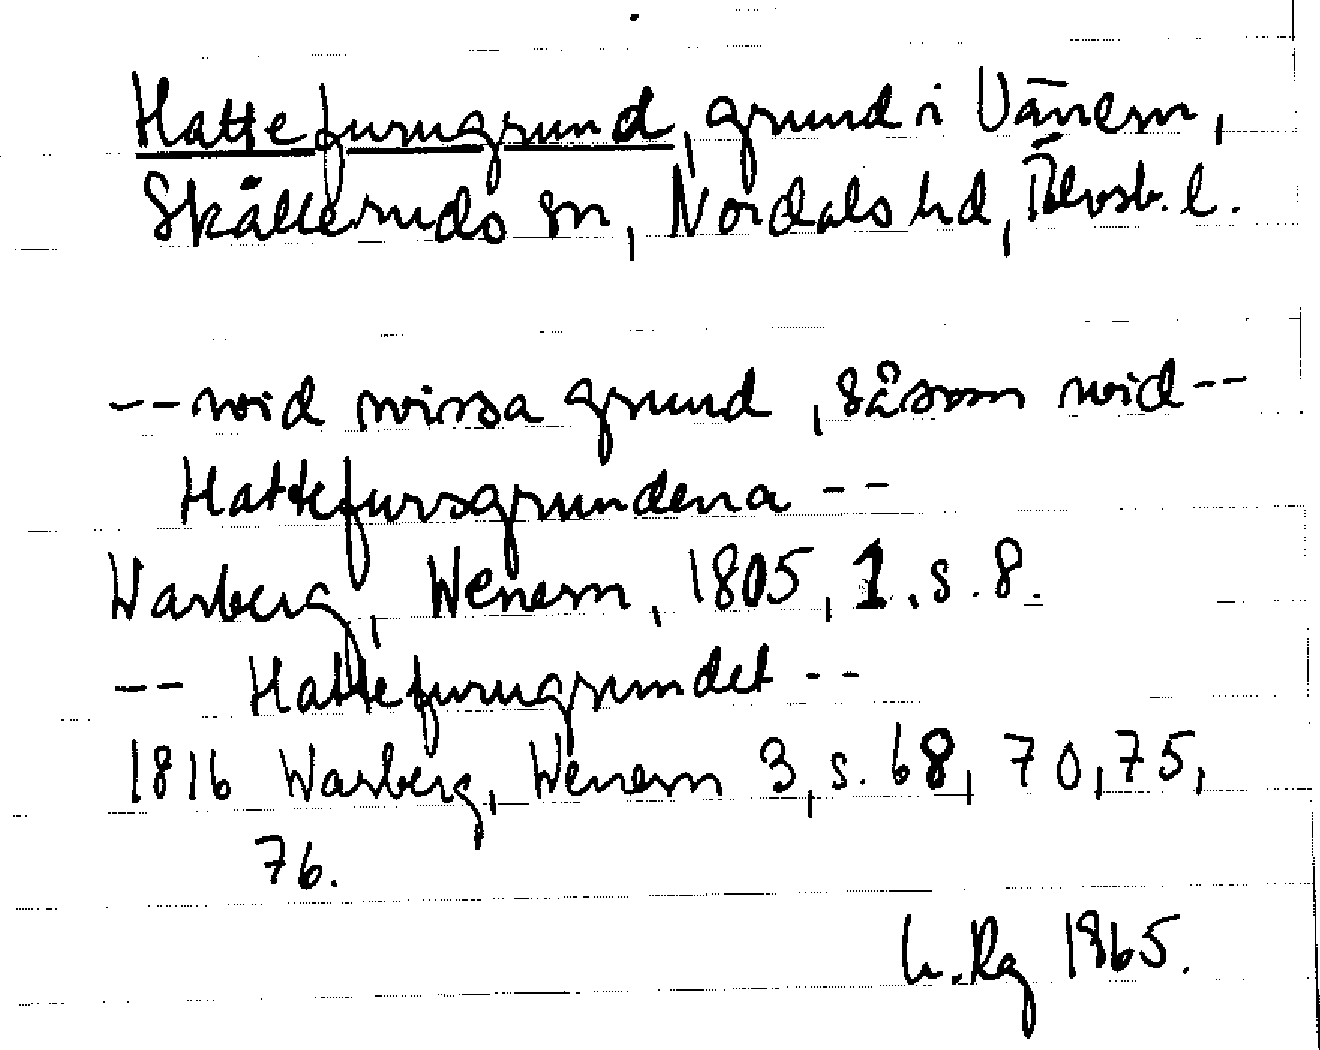 Hattefurugrund, grund i Vänern,
Skålleruds sn, Nordals hd, Älvsb. l.
-- wid wissa grund, såsom wid --
Hattefursgrundena --
Warberg, Wenern, 1805, 1. s. 8.
-- Hattefurugrundet --
1816 Warberg, Wenern 3, s. 68, 70, 75,
76.
Rg 1965.